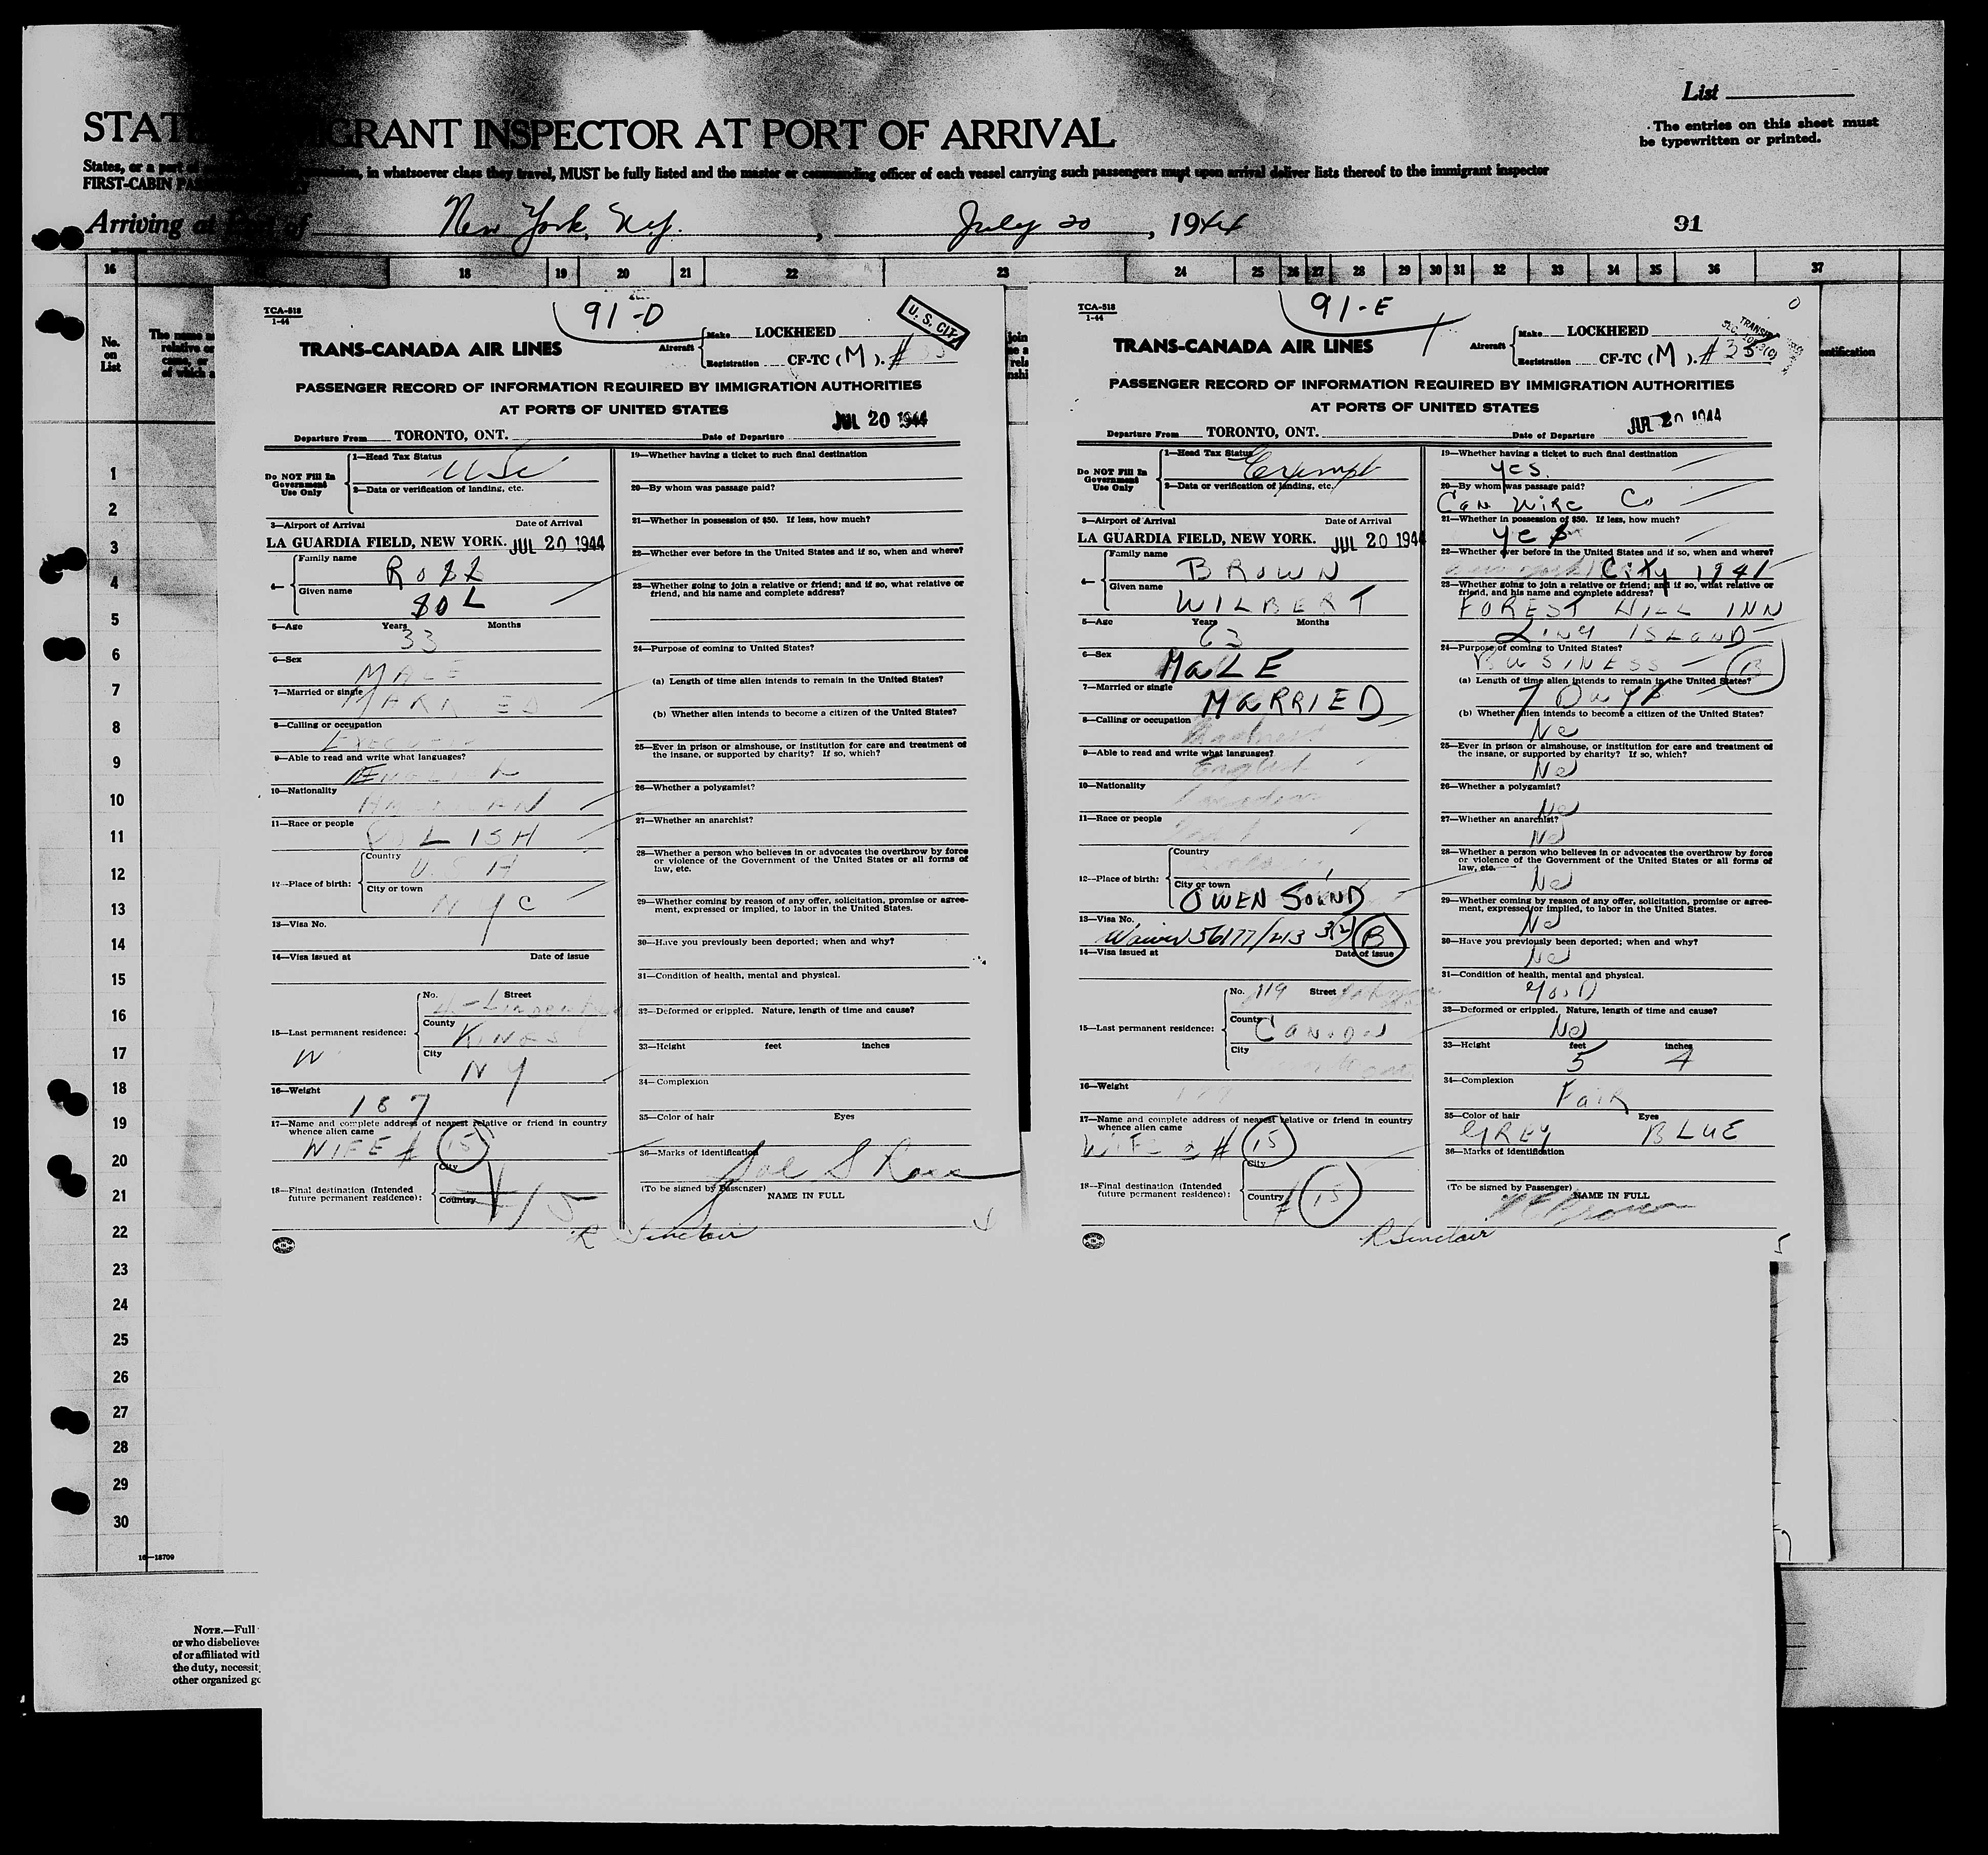 List
The entries on this sheet must
be typewritten or printed.
GRANT INSPECTOR AT PORT OF ARRIVAL
in whatsoever class they travel, MUST be fully listed and the master or commanding officer of each vessel carrying such passengers must upon arrival deliver lists thereof to the immigrant inspector
FIRST-CABIN
Arriving at Port of New York, N.Y. , July 20 , 1944
91
16 18 19 20 21 22 23 24 25 26 27 28 29 30 31 32 33 34 35 36 37
No.
on
List
1
2
3
4
5
6
7
8
9
10
11
12
13
14
15
16
17
18
19
20
21
22
23
24
25
26
27
28
29
30
16—18709
NOTE.—Full
or who disbelieves
of or affiliated with
the duty, necessit
other organized go
TCA-518
1-44
91-D
U. S. CIT.
TRANS-CANADA AIR LINES
Aircraft
Make LOCKHEED
Registration CF-TC (M). #
PASSENGER RECORD OF INFORMATION REQUIRED BY IMMIGRATION AUTHORITIES
AT PORTS OF UNITED STATES
JUL 20 1944
Departure From TORONTO, ONT. Date of Departure
Do NOT Fill In
Government
Use Only
1—Head Tax Status
USC
2—Data or verification of landing, etc.
3—Airport of Arrival Date of Arrival
LA GUARDIA FIELD, NEW YORK. JUL 20 1944
4— Family name
Given name
SOL
5—Age Years Months
33
6—Sex
MALE
7—Married or single
MARRIED
8—Calling or occupation
9—Able to read and write what languages?
ENGLISH
10—Nationality
11—Race or people
POLISH
12—Place of birth:
Country
City or town
NYC
13—Visa No.
14—Visa issued at Date of issue
15—Last permanent residence:
No. Street
County
KINGS
City
N Y
W
16—Weight
187
17—Name and complete address of nearest relative or friend in country
whence alien came
WIFE # 15
18—Final destination (Intended
future permanent residence):
City
Country
# 15
19—Whether having a ticket to such final destination
20—By whom was passage paid?
21—Whether in possession of $50. If less, how much?
22—Whether ever before in the United States and if so, when and where?
23—Whether going to join a relative or friend; and if so, what relative or
friend, and his name and complete address?
24—Purpose of coming to United States?
(a) Length of time alien intends to remain in the United States?
(b) Whether alien intends to become a citizen of the United States?
25—Ever in prison or almshouse, or institution for care and treatment of
the insane, or supported by charity? If so, which?
26—Whether a polygamist?
27—Whether an anarchist?
28—Whether a person who believes in or advocates the overthrow by force
or violence of the Government of the United States or all forms of
law, etc.
29—Whether coming by reason of any offer, solicitation, promise or agree-
ment, expressed or implied, to labor in the United States.
30—Have you previously been deported; when and why?
31—Condition of health, mental and physical.
32—Deformed or crippled. Nature, length of time and cause?
33—Height feet inches
34—Complexion
35—Color of hair Eyes
36—Marks of identification
(To be signed by Passenger)
NAME IN FULL
R Sinclair
TCA-518
1-44
91-E
TRANS-CANADA AIR LINES
Aircraft
Make LOCKHEED
Registration CF-TC (M). #
PASSENGER RECORD OF INFORMATION REQUIRED BY IMMIGRATION AUTHORITIES
AT PORTS OF UNITED STATES
JUL 20 1944
Departure From TORONTO, ONT. Date of Departure
Do NOT Fill In
Government
Use Only
1—Head Tax Status
Exempt
2—Data or verification of landing, etc.
3—Airport of Arrival Date of Arrival
LA GUARDIA FIELD, NEW YORK. JUL 20 1944
4— Family name
BROWN
Given name
WILBERT
5—Age Years Months
63
6—Sex
MALE
7—Married or single
MARRIED
8—Calling or occupation
9—Able to read and write what languages?
English
10—Nationality
Canadian
11—Race or people
12—Place of birth:
Country
City or town
OWEN SOUND
13—Visa No.
Waiver 56177/213 3(2) B
14—Visa issued at Date of issue
15—Last permanent residence:
No. 119 Street
County
CANADA
City
16—Weight
17—Name and complete address of nearest relative or friend in country
whence alien came
WIFE # 15
18—Final destination (Intended
future permanent residence):
City
Country # 15
19—Whether having a ticket to such final destination
YES.
20—By whom was passage paid?
CAN WIRE Co
21—Whether in possession of $50. If less, how much?
YES
22—Whether ever before in the United States and if so, when and where?
New York City 1941
23—Whether going to join a relative or friend; and if so, what relative or
friend, and his name and complete address?
FOREST HILL INN
LONG ISLAND
24—Purpose of coming to United States?
BUSINESS B
(a) Length of time alien intends to remain in the United States?
7 DAYS
(b) Whether alien intends to become a citizen of the United States?
No
25—Ever in prison or almshouse, or institution for care and treatment of
the insane, or supported by charity? If so, which?
No
26—Whether a polygamist?
No
27—Whether an anarchist?
No
28—Whether a person who believes in or advocates the overthrow by force
or violence of the Government of the United States or all forms of
law, etc.
No
29—Whether coming by reason of any offer, solicitation, promise or agree-
ment, expressed or implied, to labor in the United States.
No
30—Have you previously been deported; when and why?
No
31—Condition of health, mental and physical.
GOOD
32—Deformed or crippled. Nature, length of time and cause?
No
33—Height feet inches
5 4
34—Complexion
FAIR
35—Color of hair Eyes
GREY BLUE
36—Marks of identification
(To be signed by Passenger)
NAME IN FULL
R Sinclair